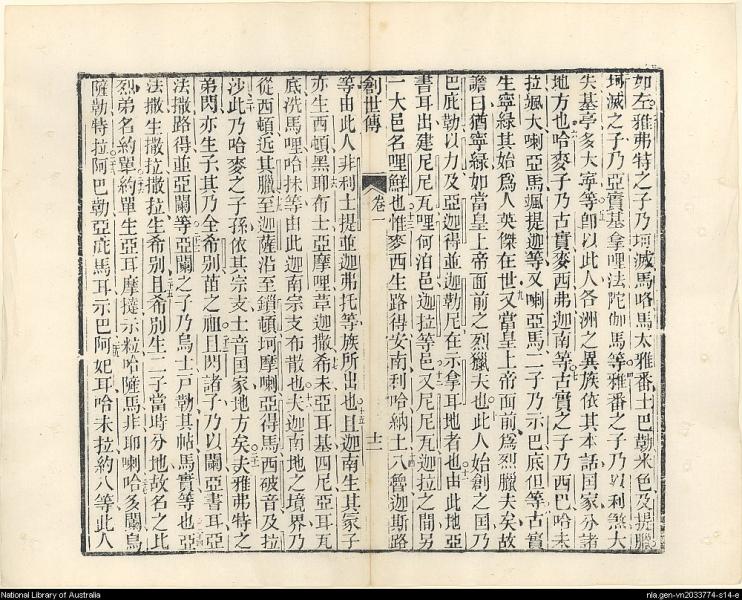 如左雅弗特之子乃坷滅馬咯馬太雅番土巴勒米色及提臘
坷滅之子乃亞實基拿哩法陀伽馬等雅番之子乃以利煞大
失基亭多大寧等卽以此人各洲之異族依其本話囯家分諸
地方也哈麥子乃古實麥西弗迦南等古實之子乃西巴哈未
拉颯大喇亞馬颯提迦等又喇亞馬二子乃示巴底但等古實
生寧緑其始爲人英傑在世又當皇上帝面前爲烈臘夫矣故
諺曰猶寧緑如當皇上帝面前之烈獵夫也此人始創之囯乃
巴庇勒以力及亞迦得並迦勒尼在示拿耳地者也由此地亞
書耳出建尼尼瓦哩何泊邑迦拉等邑又尼尼瓦迦拉之間另
一大邑名哩鮮也惟麥西生路得安南利哈納土八魯迦斯路
創世傳
卷一
十二
等由此人非利士提並迦弗托等族所出也且迦南生其冢子
亦生西頓黑耶布士亞摩哩革迦撒希未亞耳基四尼亞耳瓦
底洗馬哩哈抹等由此迦南宗支布散也夫迦南地之境界乃
從西頓近其臘至迦薩沿至鎖頓坷摩喇亞得馬西破音及拉
沙此乃哈麥之子孫依其宗支土音囯家地方矣夫雅弗特之
弟閃亦生子其乃全希别苗之祖且閃諸子乃以闌亞書耳亞
法撒路得並亞闌等亞闌之子乃烏士戸勒其帖馬實等也亞
法撒生撒拉撒拉生希别且希别生二子當時分地故名之比
烈弟名約單約單生亞耳摩撻示粒哈薩馬非耶喇哈多闌烏
薩勒特拉阿巴勒亞庇馬耳示巴阿妃耳哈未拉約八等此人
National Library of Australia
nla.gen-vn2033774-s14-e